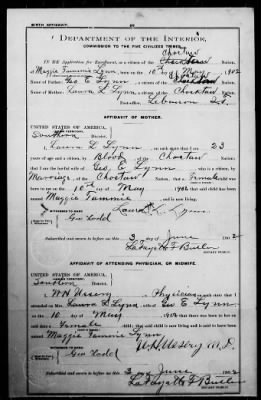 BIRTH AFFIDAVIT.
DEPARTMENT OF THE INTERIOR,
COMMISSION TO THE FIVE CIVILIZED TRIBES.
Choctaw
IN RE Application for Enrollment, as a citizen of the Nation,
of Maggie Fammie Lynn, born on the 10 day of May, 1902
Name of Father: Geo E Lynn a citizen of the Nation.
Name of Mother: Laura L Lynn a citizen of the Choctaw Nation.
Post-office, Lebanon I.T.
AFFIDAVIT OF MOTHER.
UNITED STATES OF AMERICA,
Southern District.
I, Laura L Lynn, on oath state that I am 23
years of age and a citizen, by Blood, of the Choctaw Nation;
that I am the lawful wife of Geo E Lynn, who is a citizen, by
Marriage, of the Choctaw Nation; that a Female child was
born to me on 10th day of May, 1902, that said child has been named
Maggie Fammie, and is now living.
Laura L. Lynn
WITNESSES TO MARK:
Geo Lodel
Subscribed and sworn to before me this 3 day of June, 1902
LaFayette F Butler
NOTARY PUBLIC.
AFFIDAVIT OF ATTENDING PHYSICIAN, OR MIDWIFE.
UNITED STATES OF AMERICA,
Southern District.
I, W H Ussery, a Physician, on oath state that I
attended on Mrs. Laura L Lynn, wife of Geo E Lynn
on the 10 day of May, 1902, that there was born to her on said date a
Female child; that said child is now living and is said to have been named
Maggie Fammie Lynn
W H Ussery M.D.
WITNESSES TO MARK:
Geo Lodel
Subscribed and sworn to before me this 3 day of June, 1902
LaFayette F Butler